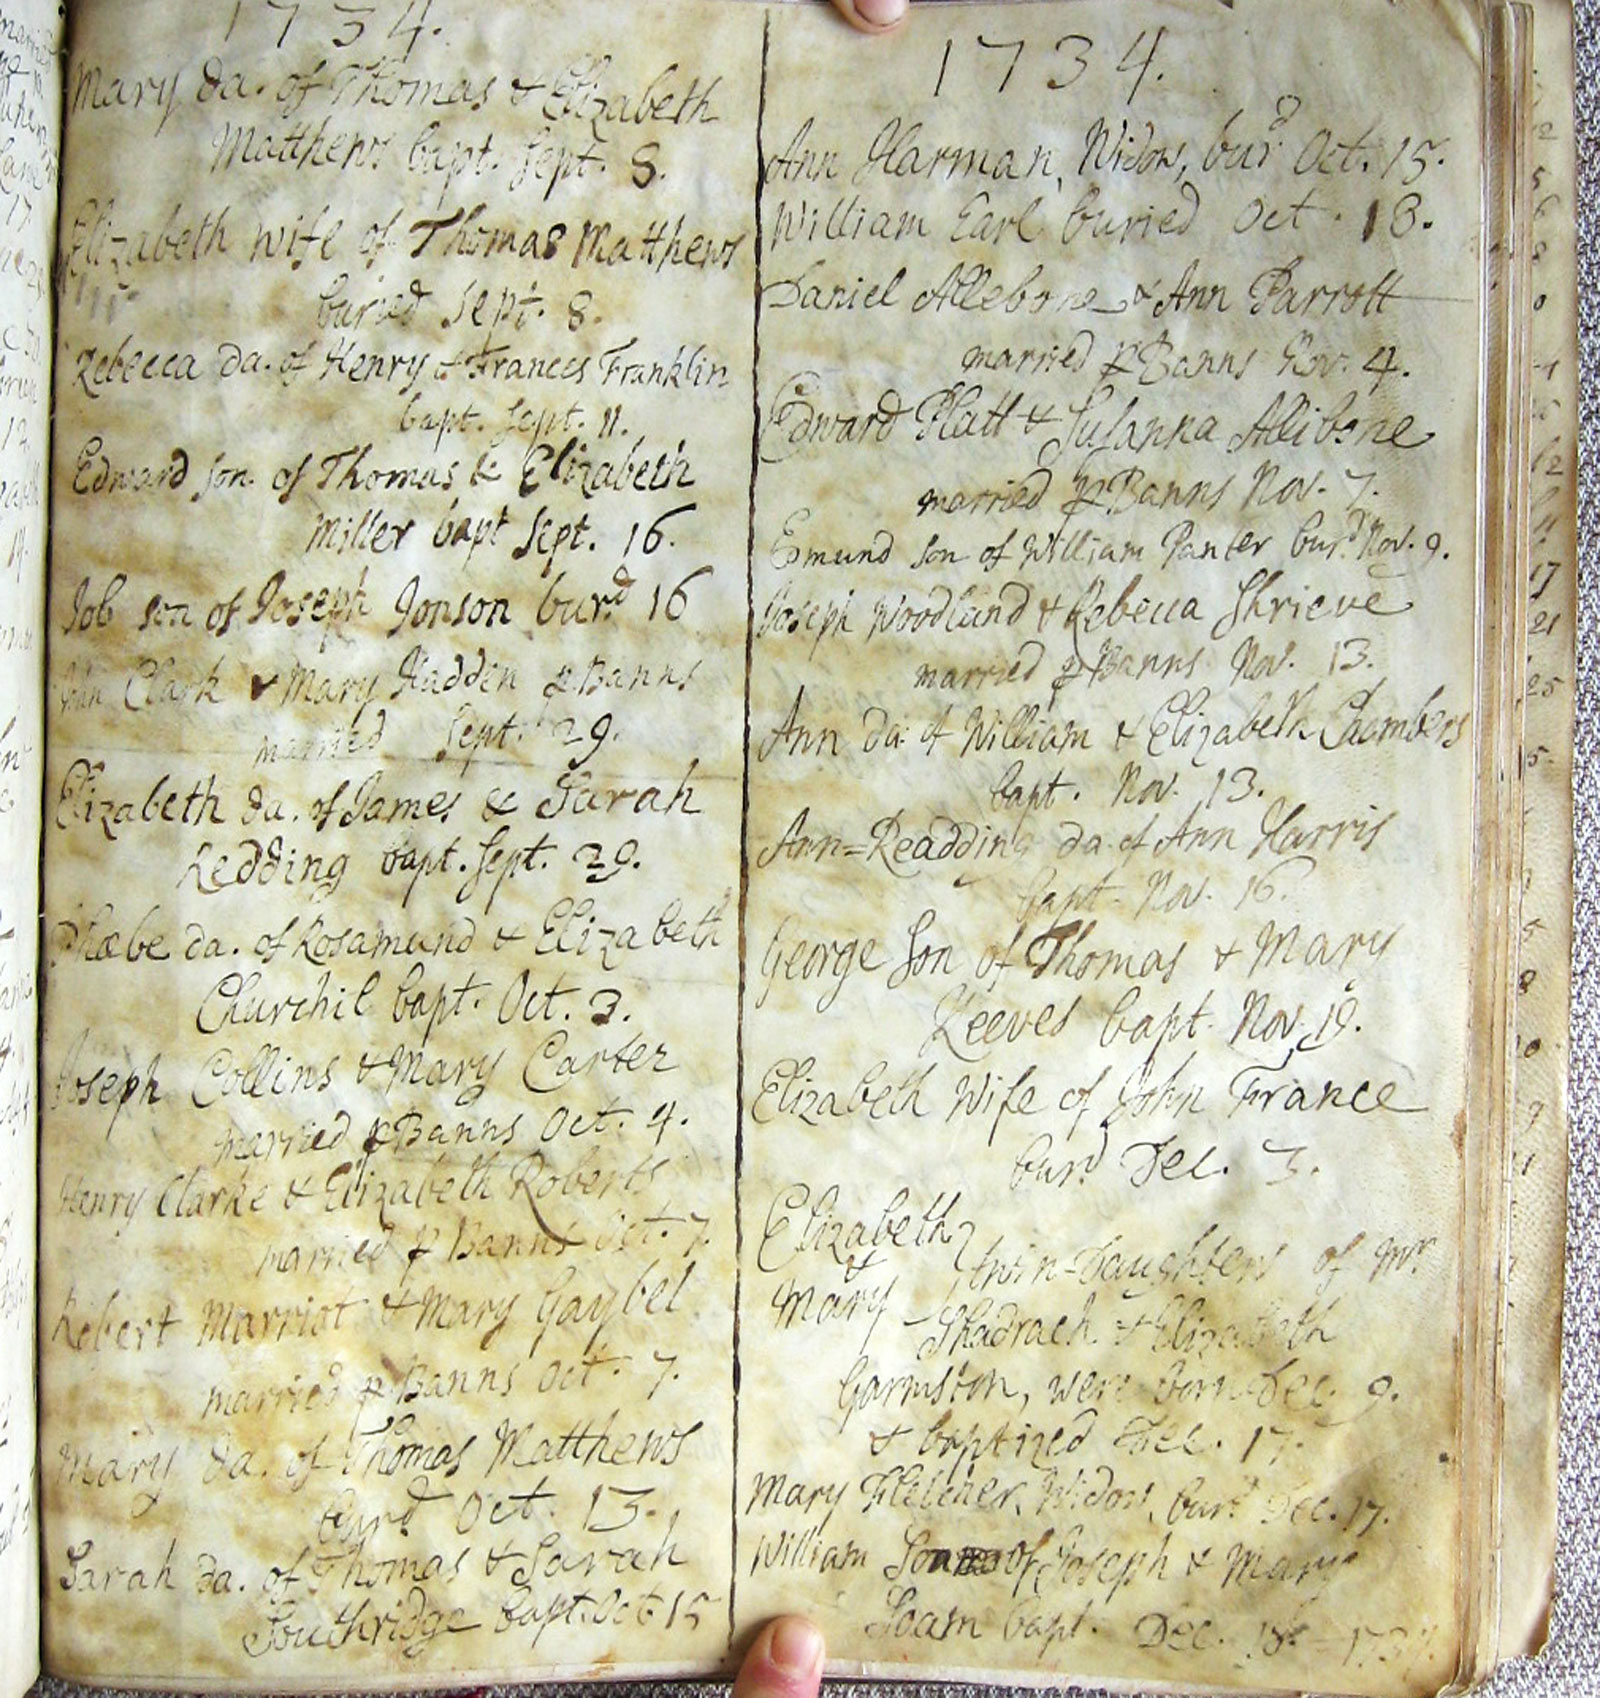 1734.
Mary da. of Thomas & Elizabeth
Matthews bapt. Sept. 8.
Elizabeth wife of Thomas Matthews
buried Sept. 8.
Rebecca da. of Henry & Frances Franklin
bapt. Sept. 11.
Edward son of Thomas & Elizabeth
Miller bapt Sept. 16.
Job son of Joseph Jonson bur.d 16
John Clark & Mary Hadden p Banns
married Sept. 29.
Elizabeth da. of James & Sarah
Redding bapt. Sept. 29.
Phœbe da. of Rosamund & Elizabeth
Churchil bapt. Oct. 3.
Joseph Collins & Mary Carter
married p Banns Oct. 4.
Henry Clarke & Elizabeth Roberts
married p Banns Oct. 7.
Robert Marriot & Mary Gaybel
married p Banns Oct. 7.
Mary da. of Thomas Matthews
bur.d Oct. 13.
Sarah da. of Thomas & Sarah
Southridge bapt. Oct 15
1734.
Ann Harman, Widow, bur.d Oct. 15.
William Earl buried Oct. 18.
Daniel Allebone & Ann Parrott
married p Banns Nov. 4.
Edward Platt & Susanna Allibone
married p Banns Nov. 7.
Edmund son of William Panter bur.d Nov. 9.
Joseph Woodland & Rebecca Shrieve
married p Banns Nov. 13.
Ann da: of William & Elizabeth Chambers
bapt. Nov. 13.
Ann=Readding da. of Ann Harris
bapt. Nov. 16.
George Son of Thomas & Mary
Reeves bapt. Nov. 19.
Elizabeth Wife of John France
bur.d Dec. 3.
Elizabeth
&
Mary twin-Daughters of Mr.
Shadrach & Elizabeth
Garmston, were born Dec. 9.
& baptized Dec. 17.
Mary Fletcher, Widow, bur.d Dec. 17.
William Son of Joseph & Mary
Soam bapt. Dec. 18 - 1734.